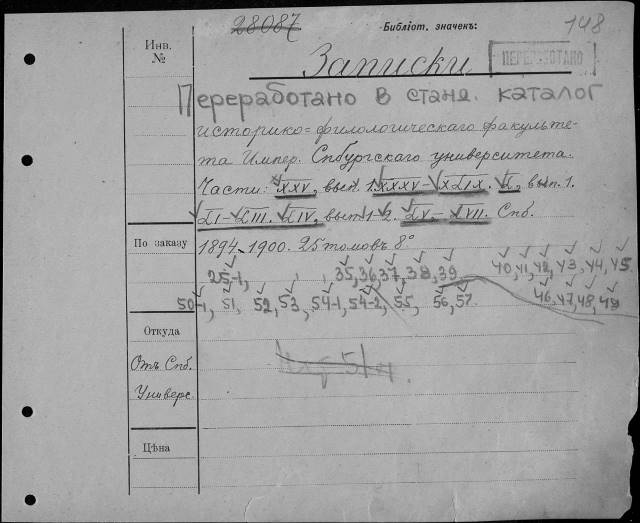 28087
Библіот. значекъ:
148
Инв.
№
Записки
ПЕРЕРАБОТАНО
Переработано в станд. каталог
историко=филологическаго факульте-
та Импер. Спбургскаго университета.
Части: XXV, вып. 1. XXXV-XLIX. L, вып. 1.
LI-LIII. LIV, вып. 1-2. LV-LVII. Спб.
По заказу
1894-1900. 25 томовъ 8°
25-1, 35, 36, 37, 38, 39 40, 41, 42, 43, 44, 45.
50-1, 51, 52, 53, 54-1, 54-2, 55, 56, 57. 46, 47, 48, 49
Откуда
Отъ Спб.
Универс.
Цѣна